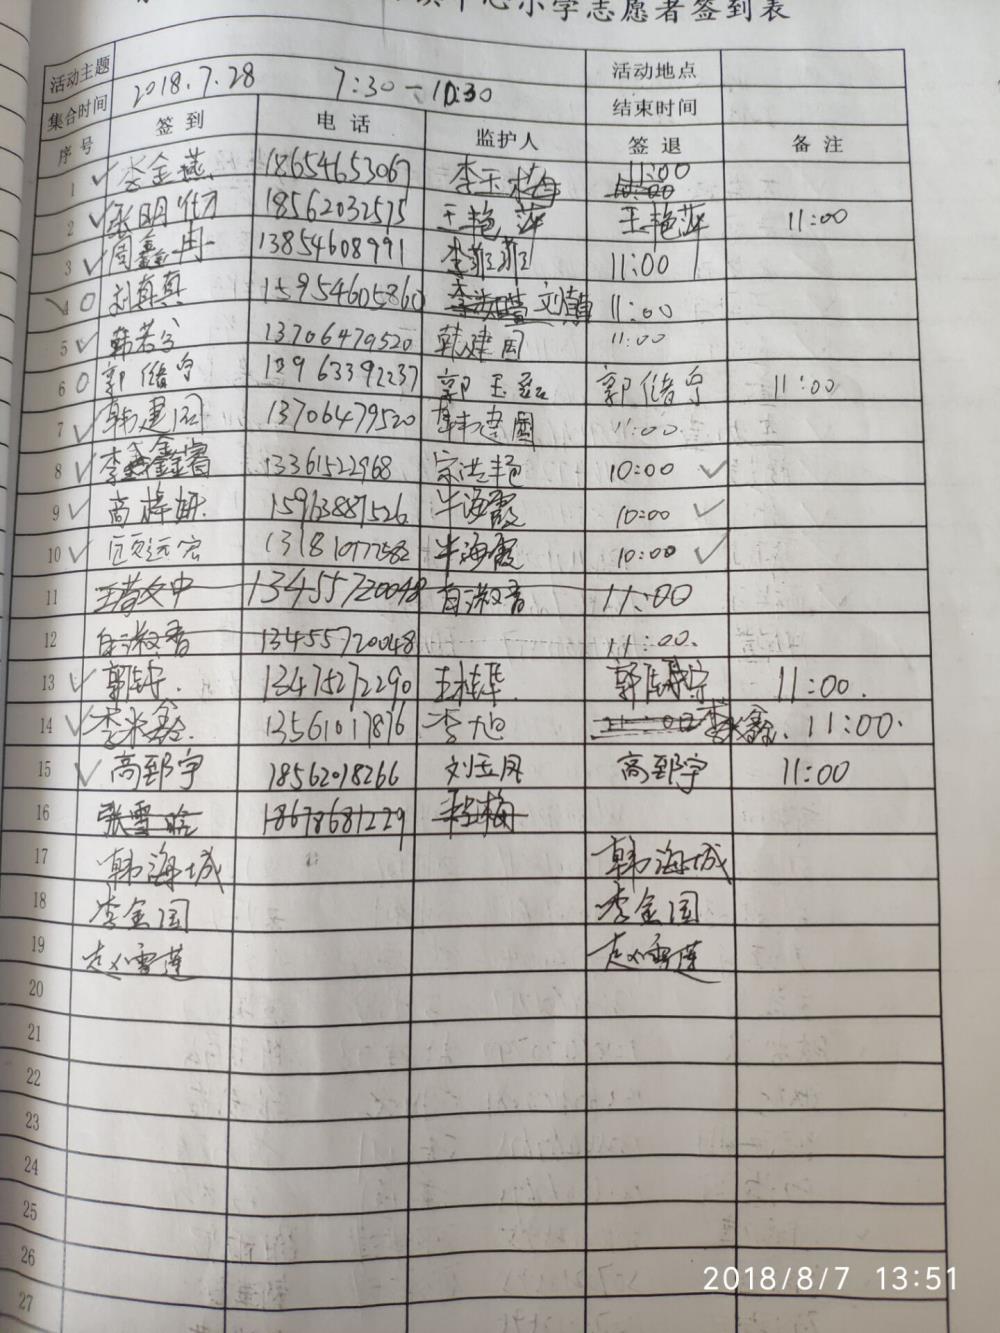 小学志愿者签到表
活动主题 活动地点
集合时间 2018.7.28 7:30—10:30 结束时间
序号 签到 电话 监护人 签退 备注
1 李金燕 18654653067 李玉梅 11:00
2 18562032575 王艳萍 王艳萍 11:00
3 周鑫冉 13854608991 李菲菲 11:00
4 刘真真 15954605860 11:00
5 韩若兮 13706479520 韩建国 11:00
6 郭储宁 郭玉磊 郭储宁 11:00
7 韩建国 13706479520 韩建国 11:00
8 李鑫睿 13361522968 宗洪艳 10:00
9 高梓妍 15963887526 牛海霞 10:00
10 牛海霞 10:00
11 13455720048 11:00
12 13455720048 11:00.
13 13475272290 王桂华. 11:00.
14 李米鑫. 13561017876 李旭 鑫. 11:00.
15 高郅宇 18562018266 刘玉凤 高郅宇 11:00
16 张雪晗 18678681229 程梅
17 韩海城 韩海城
18 李金国 李金国
19 赵雪莲 赵雪莲
20
21
22
23
24
25
26
27
2018/8/7 13:51